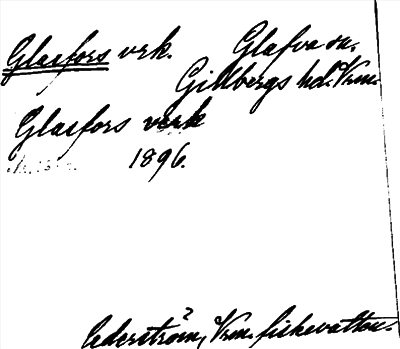 Glasfors vrk. Glafva sn.
Gillbergs hd. Vrm.
Glasfors verk
1896.
Cederström, Vrm. fiskevatten.